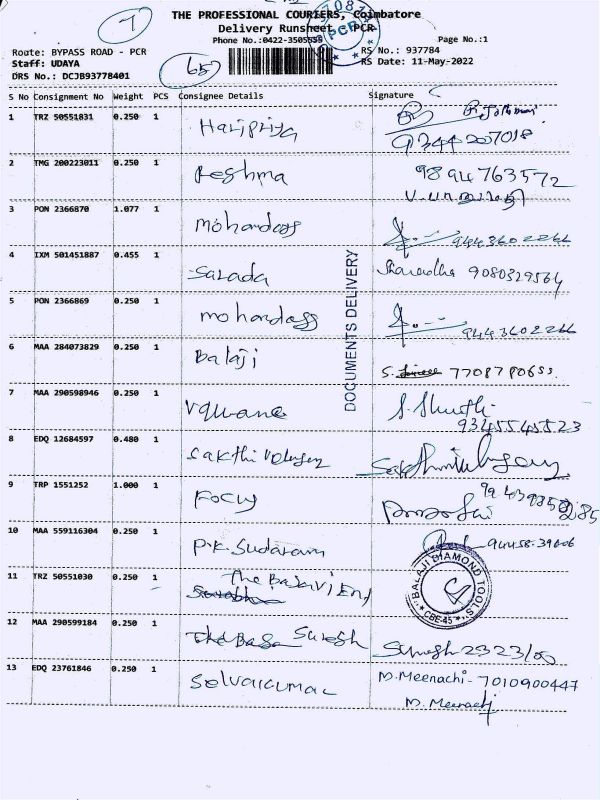 7
THE PROFESSIONAL COURIERS, Coimbatore
Delivery Runsheet PCR
Phone No.:0422-3505550 Page No.:1
Route: BYPASS ROAD - PCR RS No.: 937784
Staff: UDAYA RS Date: 11-May-2022
DRS No.: DCJB93778401
657
S No Consignment No Weight PCS Consignee Details Signature
1 TRZ 50551831 0.250 1 Haripriya
9344207018
2 TMG 200223011 0.250 1 Reshma 9894763572
3 PON 2366870 1.077 1 mohandass 9443602266
4 IXM 501451887 0.455 1 Sarada Sharadha 9080329564
5 PON 2366869 0.250 1 mohandass 9443602266
6 MAA 284073829 0.250 1 Balaji S. 77087 80655.
7 MAA 290598946 0.250 1 S. Shruthi
9345545523
8 EDQ 12684597 0.480 1 Sakthi Velugey
9 TRP 1551252 1.000 1 Focus
10 MAA 559116304 0.250 1 P.K. Sudaram 94458-39606
11 TRZ 50551030 0.250 1 The Bajavi End
12 MAA 290599184 0.250 1 Suresh Suresh 2323/00
13 EDQ 23761846 0.250 1 Selvakumar M. Meenachi - 7010900447
M. Meenachi
DOCUMENTS DELIVERY
BALAJI DIAMOND TOOLS
CBE-45